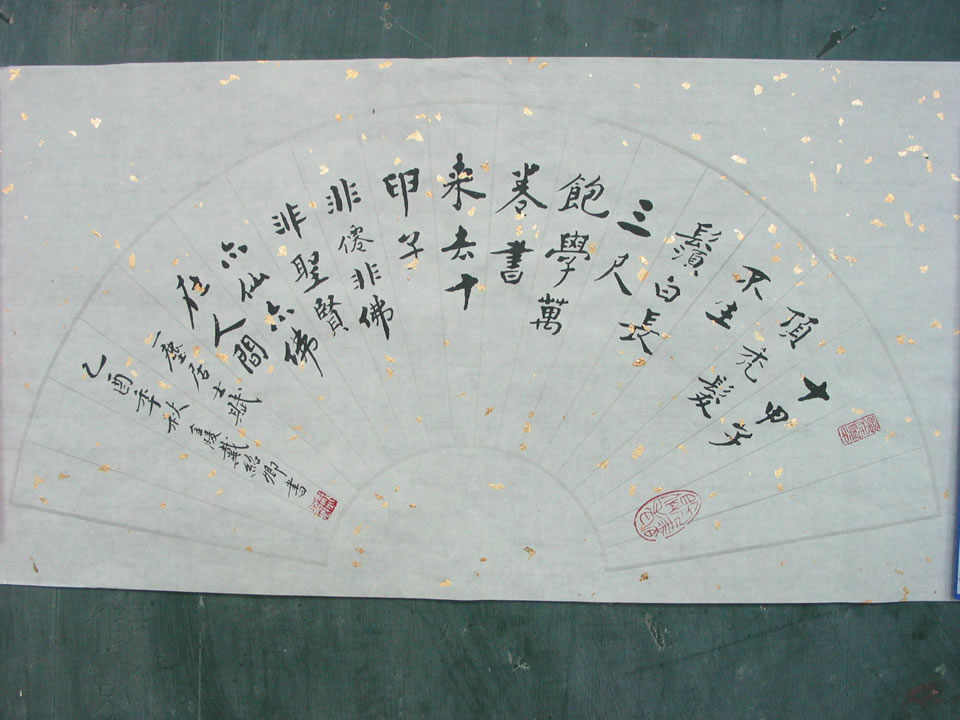 十甲子
頂禿髮
不生
鬚白長
三尺
飽學萬
卷書
來去十
甲子
非僊非佛
非聖賢
亦仙亦佛
在人間
一居士賦
乙酉年秋金陵戴紹卿書